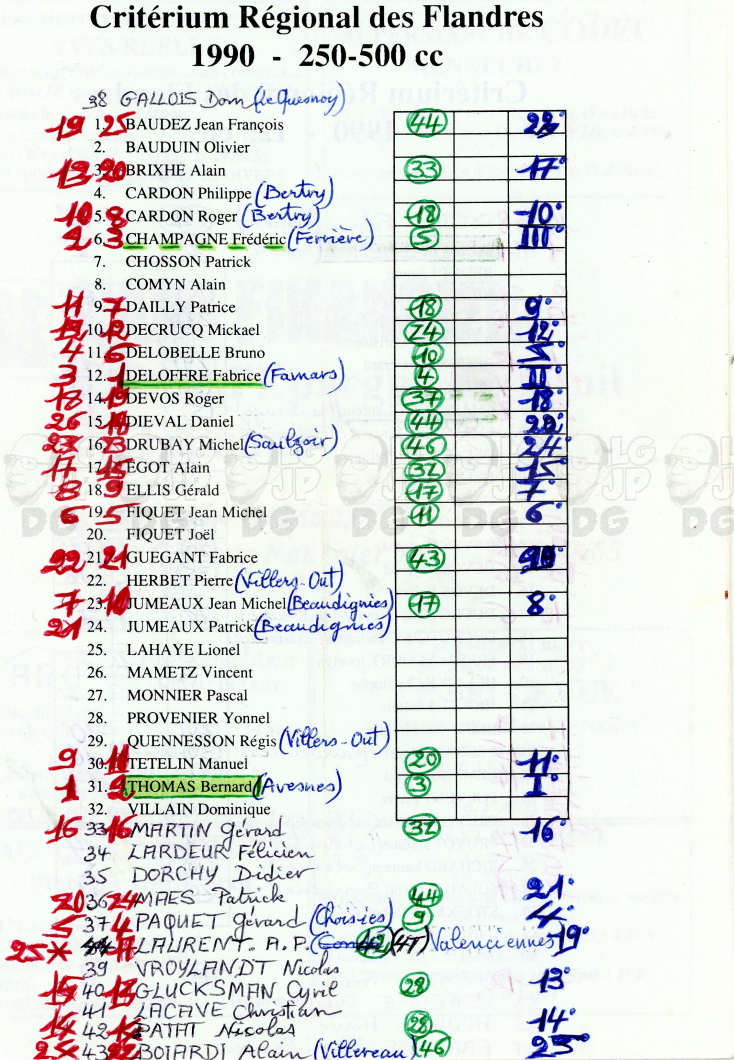 Critérium Régional des Flandres
1990 - 250-500 cc
38 GALLOIS Dom (Le Quesnoy)
19 25 1. BAUDEZ Jean François 44
2. BAUDUIN Olivier
20 3. BRIXHE Alain 33 17°
4. CARDON Philippe (Bertry)
10 8 5. CARDON Roger (Bertry) 18 10°
2 3 6. CHAMPAGNE Frédéric (Ferrière) 5 III°
7. CHOSSON Patrick
8. COMYN Alain
11 7 9. DAILLY Patrice 18 9°
12 10. DECRUCQ Mickael 24 12°
4 6 11. DELOBELLE Bruno 10 5°
3 1 12. DELOFFRE Fabrice (Famars) 4 II°
18 19 14. DEVOS Roger 37 18°
26 15. DIEVAL Daniel 44
23 23 16. DRUBAY Michel (Saulzoir) 46 24°
17 17. EGOT Alain 32 15°
8 9 18. ELLIS Gérald 17 7°
6 5 19. FIQUET Jean Michel 11 6°
20. FIQUET Joël
22 21 21. GUEGANT Fabrice 43
22. HERBET Pierre (Villers-Out)
7 10 23. JUMEAUX Jean Michel (Beaudignies) 17 8°
21 24. JUMEAUX Patrick (Beaudignies)
25. LAHAYE Lionel
26. MAMETZ Vincent
27. MONNIER Pascal
28. PROVENIER Yonnel
29. QUENNESSON Régis (Villers-Out)
9 11 30. TETELIN Manuel 20 11°
1 2 31. THOMAS Bernard (Avesnes) 3 I°
32. VILLAIN Dominique
16 33 16 MARTIN Gérard 32 16°
34 LARDEUR Félicien
35 DORCHY Didier
20 36 24 MAES Patrick 44 21°
5 37 4 PAQUET Gérard (Choisies) 9 4°
25* LAURENT. A.P. 42 (47) Valenciennes 19°
39 VROYLANDT Nicolas
15 40 13 GLUCKSMAN Cyril 28 13°
41 LACAVE Christian
14 42 PATAT Nicolas 28 14°
43 22 BOIARDI Alain (Villereau) 46 23°
LG JP DG